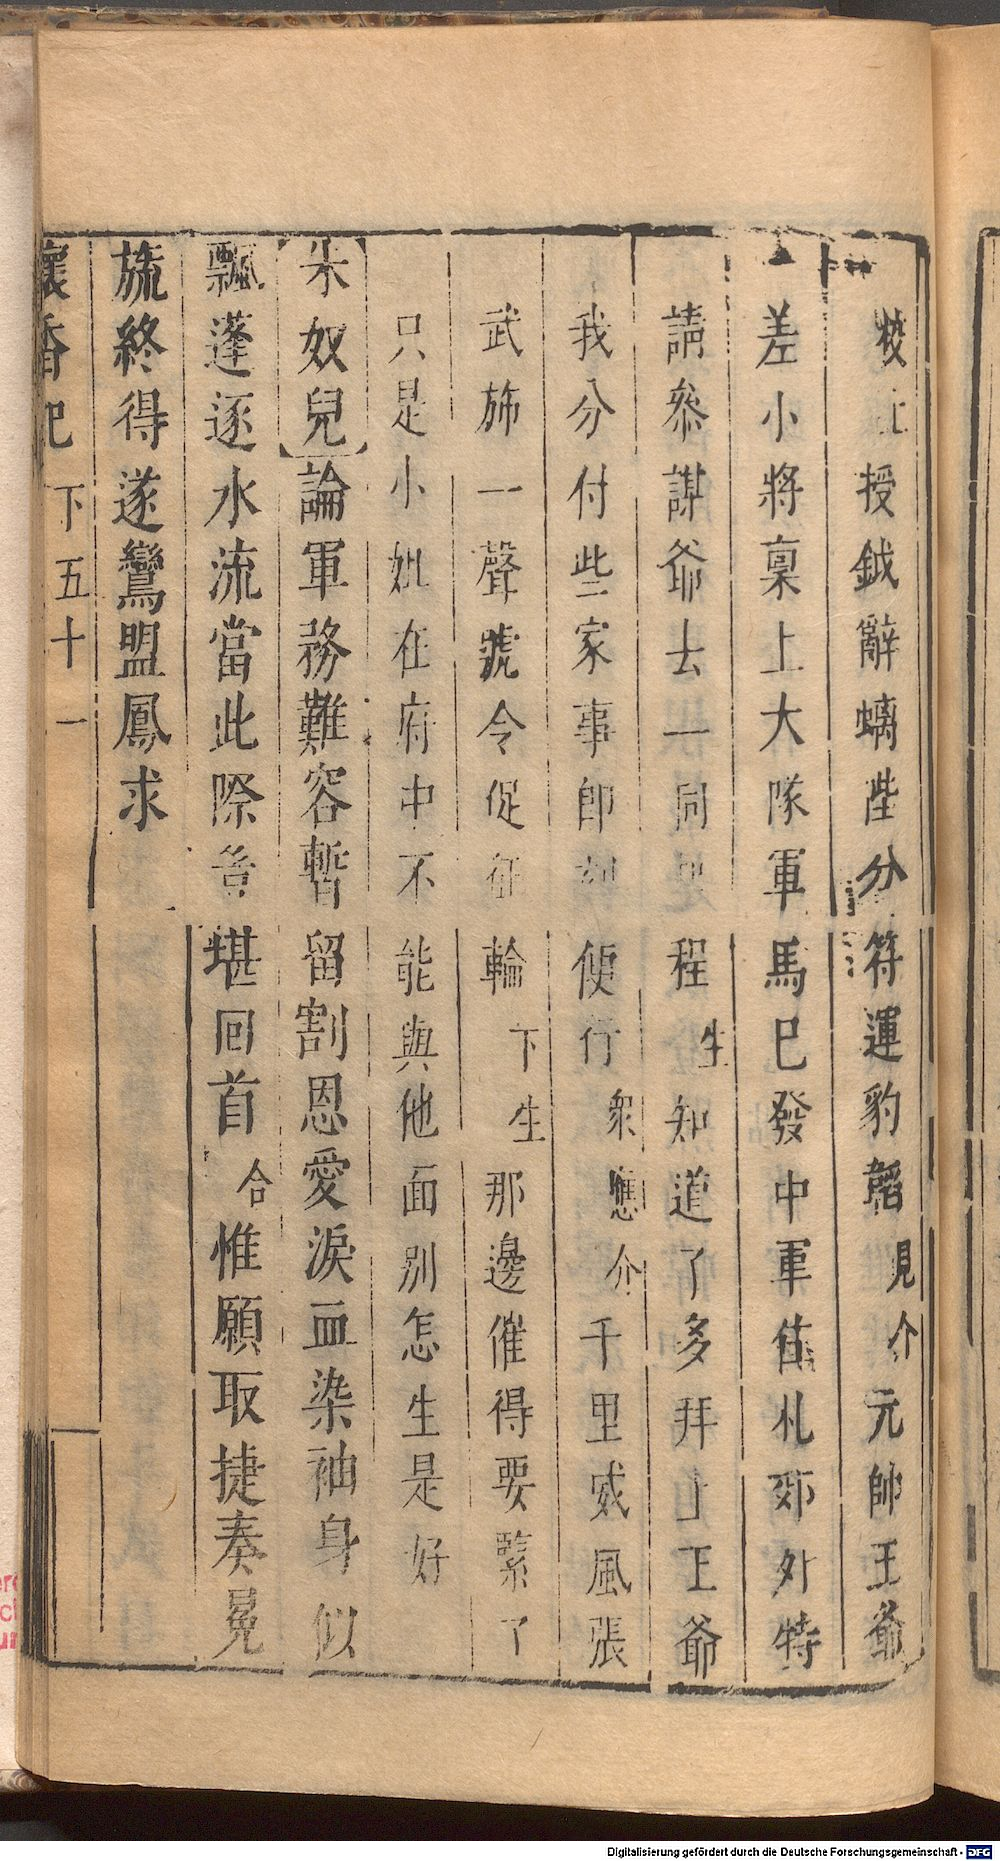 校上授鉞辭螭陛分符運豹韜見介元帥王爺
差小將稟上大隊軍馬已發中軍住札郊外特
請參謀爺去一同起程生知道了多拜上王爺
我分付些家事即刻便行眾應介千里威風張
武旆一聲號令促征輪下生那邊催得要緊了
只是小姐在府中不能與他面別怎生是好
朱奴兒論軍務難容暫留割恩愛淚血染袖身似
飄蓬逐水流當此際竟堪回首合惟願取捷奏冕
旒終得遂鸞盟鳳求
懷香記 下五十一
Digitalisierung gefördert durch die Deutsche Forschungsgemeinschaft - DFG